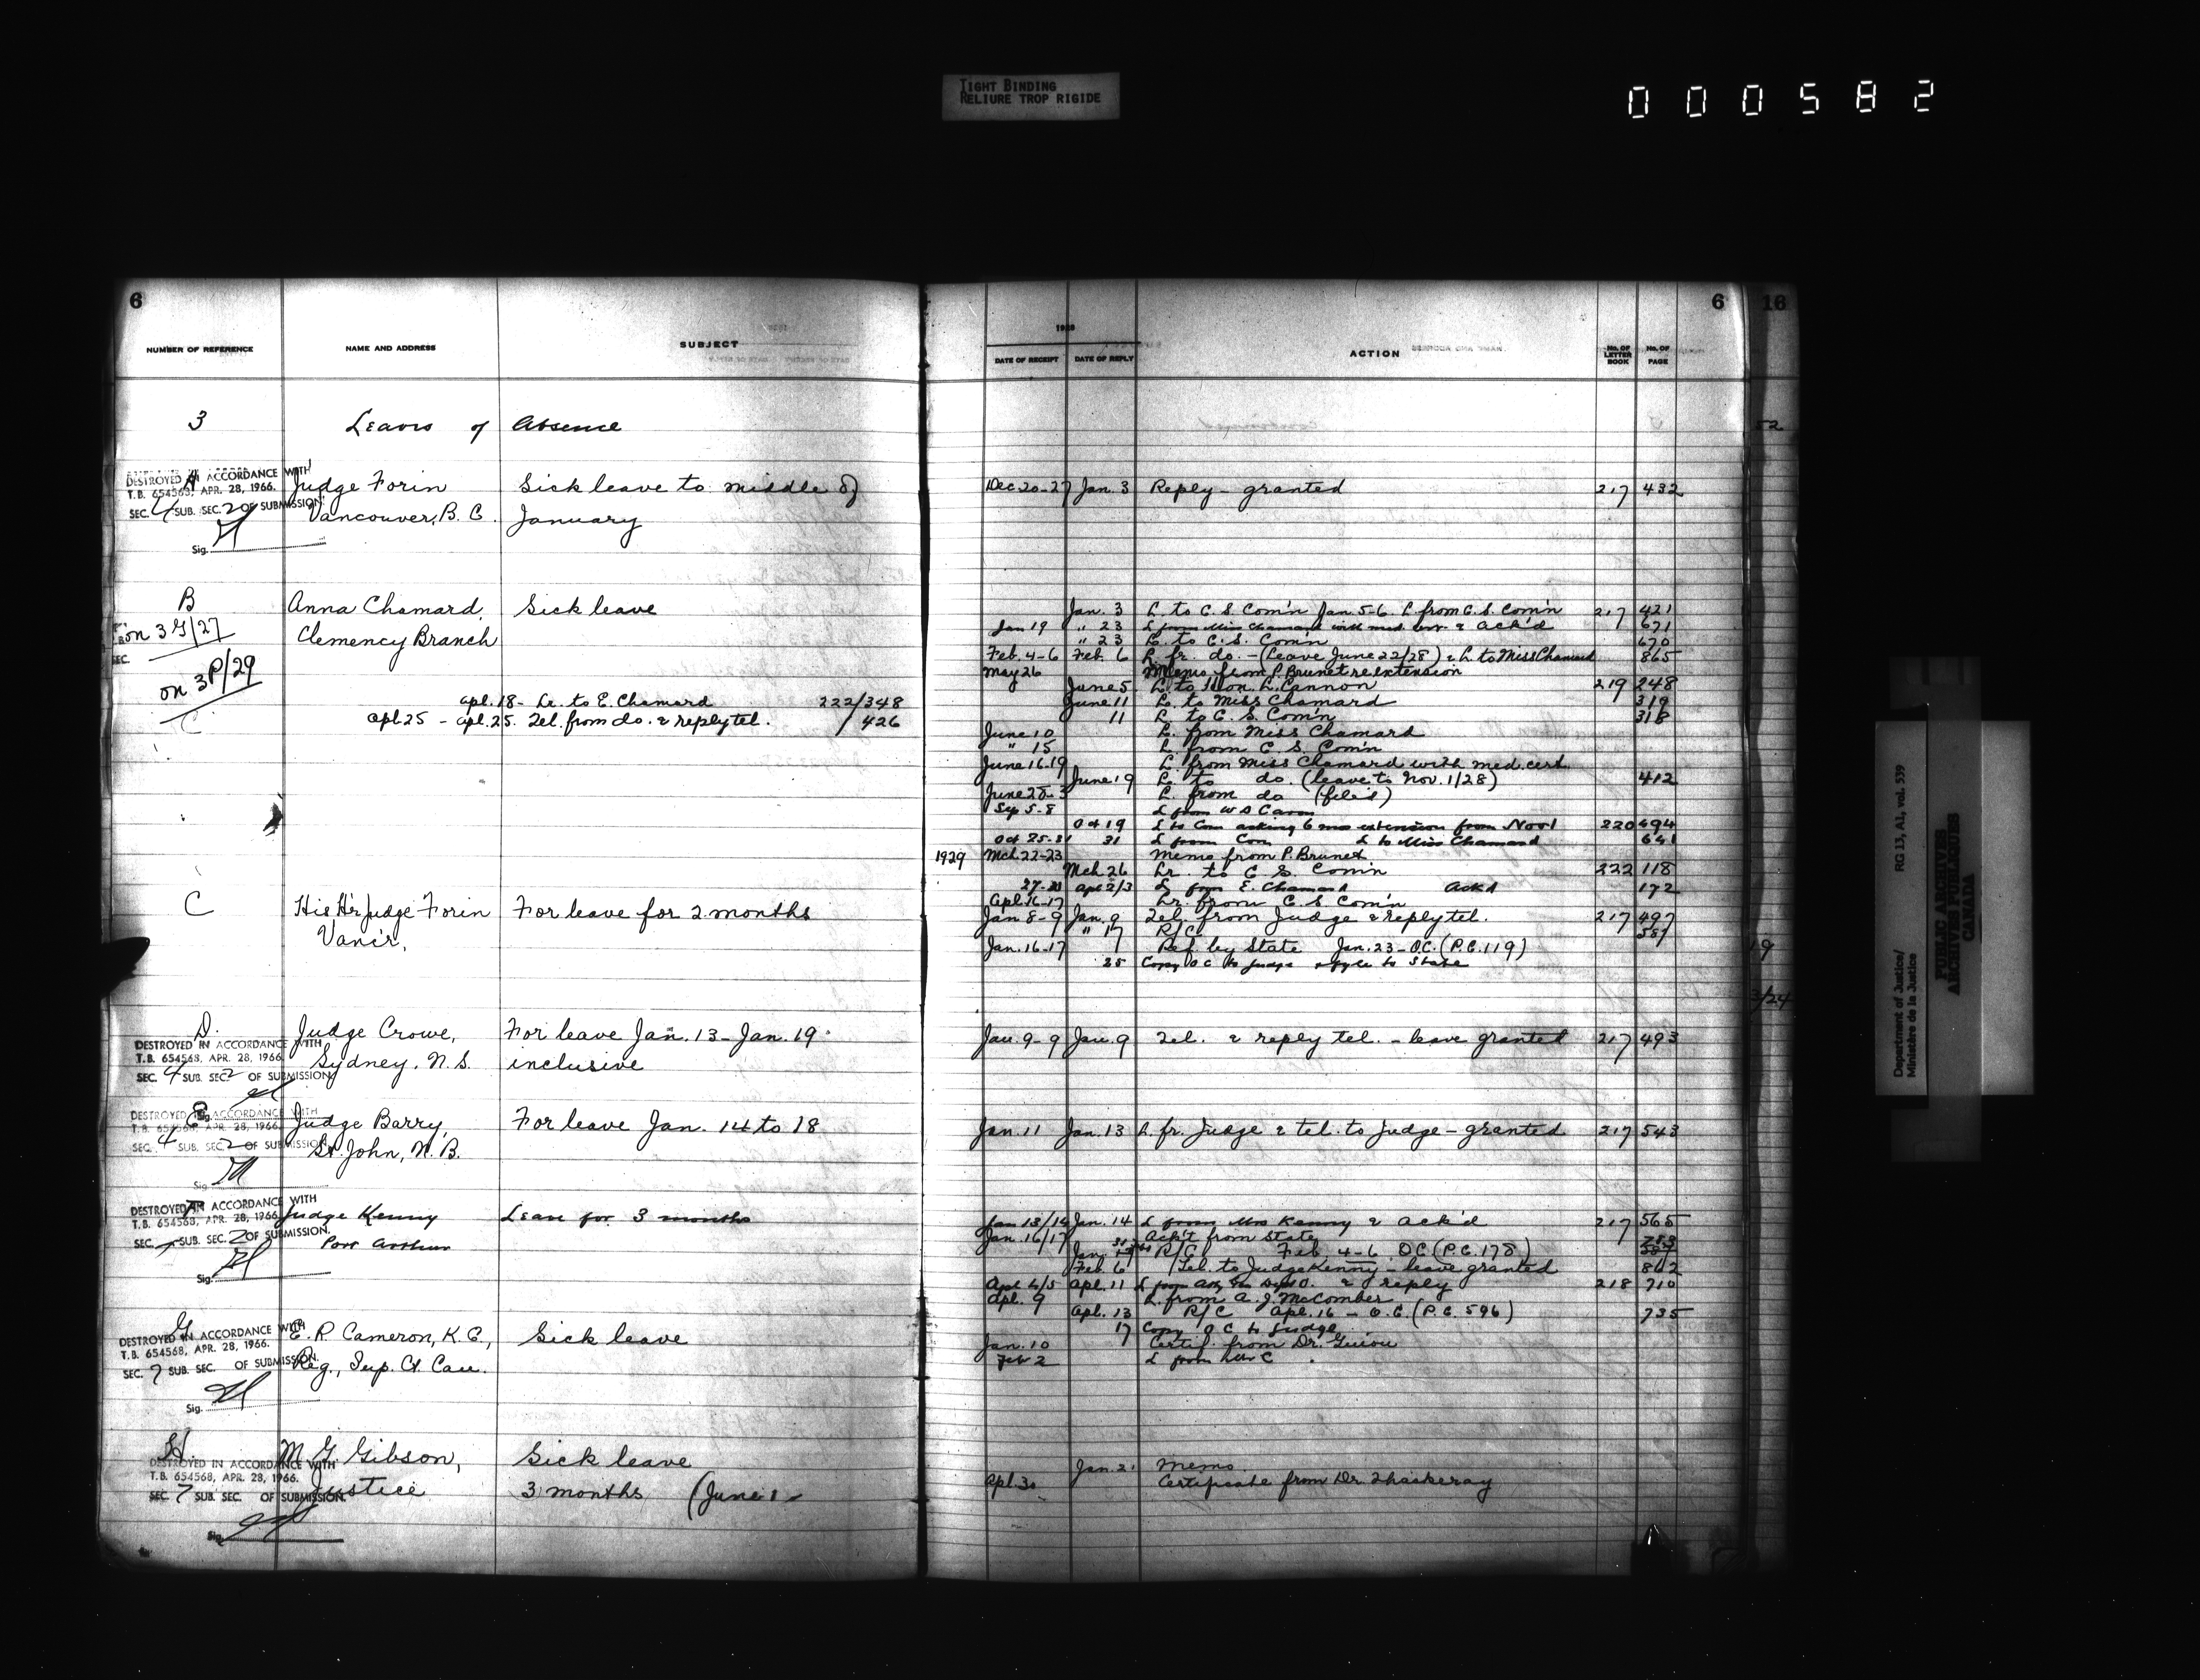 TIGHT BINDING
RELIURE TROP RIGIDE
000582
6
NUMBER OF REFERENCE
NAME AND ADDRESS
SUBJECT
3 Leaves of Absence
A Judge Forin Sick leave to middle of
Vancouver, B. C. January
DESTROYED IN ACCORDANCE WITH
T.B. 654568, APR. 28, 1966.
SEC. 4 SUB. SEC. 2 OF SUBMISSION.
Sig.
B Anna Chamard, Sick leave
on 3 G/27 Clemency Branch
on 3 P/29
Apl. 18 - Lr. to E. Chamard 222/348
Apl. 25 - Apl. 25. Tel. from do. & reply tel. / 426
C His Hr Judge Forin For leave for 2 months
Vancr.
D. Judge Crowe, For leave Jan. 13 - Jan. 19
Sydney, N. S. inclusive
DESTROYED IN ACCORDANCE WITH
T.B. 654568, APR. 28, 1966.
SEC. 4 SUB. SEC. 2 OF SUBMISSION
E Judge Barry, For leave Jan. 14 to 18
St John, N. B.
DESTROYED IN ACCORDANCE WITH
T.B. 654568, APR. 28, 1966.
SEC. 4 SUB. SEC. 2 OF SUBMISSION
Sig.
F Judge Kenny Leave for 3 months
Port Arthur
DESTROYED IN ACCORDANCE WITH
T.B. 654568, APR. 28, 1966.
SEC. SUB. SEC. 2 OF SUBMISSION.
Sig.
G E. R. Cameron, K. C., Sick leave
Reg., Sup. Ct. Can.
DESTROYED IN ACCORDANCE WITH
T.B. 654568, APR. 28, 1966.
SEC. 7 SUB. SEC. OF SUBMISSION.
Sig.
H. M. G. Gibson, Sick leave
Justice 3 months (June 1
DESTROYED IN ACCORDANCE WITH
T.B. 654568, APR. 28, 1966.
SEC. 7 SUB. SEC. OF SUBMISSION.
Sig.
6 16
1928
DATE OF RECEIPT
DATE OF REPLY
ACTION
No. OF LETTER BOOK
No. OF PAGE
Dec 20-27 Jan. 3 Reply - granted 217 432
Jan. 3 L. to C. S. Com'n Jan. 5-6. L. from C. S. Com'n 217 421
Jan 19 " 23 L from Miss Chamard with med. cert. & ack'd 671
" 23 L. to C. S. Com'n 670
Feb. 4-6 Feb. 6 L. fr. do. - (Leave June 22/28) & L. to Miss Chamard 865
May 26 Memo from P. Brunet re extension
June 5 L. to Hon. L. Cannon 219 248
June 11 L. to Miss Chamard 319
11 L. to C. S. Com'n 318
June 10 L. from Miss Chamard
" 15 L. from C. S. Com'n
June 16-19 L. from Miss Chamard with med. cert.
June 19 L. to do. (leave to Nov. 1/28) 412
L. from do (file'd)
Sep 5-8 L from
Oct 19 L to Com asking 6 mos extension from Nov 1 220 494
Oct 25-31 31 L from Com L to Miss Chamard 641
1929 Mch. 22-23 Memo from P. Brunet
Mch. 26 Lr. to C S. Com'n 222 118
Apl 2/3 L from E. Chamard Ackd 172
Apl. 16-17 Lr. from C. S Com'n
Jan 8-9 Jan. 9 Tel. from Judge & reply tel. 217 497
" 17 R/C 587
Jan. 16-17 Ref. by State Jan. 23 - O.C. (P.C. 119)
25 Copy O C to Judge & to State
Jan. 9-9 Jan. 9 Tel. & reply tel. - leave granted 217 493
Jan. 11 Jan. 13 L. fr. Judge & tel. to Judge - granted 217 543
Jan 13/14 Jan. 14 L from Mrs Kenny & ack'd 217 565
Jan. 16/17 Ack't from State
R/C Feb. 4-6 O C (P.C. 178)
Feb 6 Tel. to Judge Kenny - leave granted 862
Apl 4/5 Apl. 11 L from & reply 218 710
Apl. 9 L. from A. J. McComber
Apl. 13 R/C Apl. 16 - O. C. (P. C. 596) 735
17 Copy O C to Judge
Jan. 10 Certif. from Dr. Guiou
Feb 2 L from Mr C
Jan. 21 Memo
Apl. 30 Certificate from Dr. Thackeray
52
19
3/24
Department of Justice/
Ministère de la Justice
RG 13, A1, vol. 539
PUBLIC ARCHIVES
ARCHIVES PUBLIQUES
CANADA